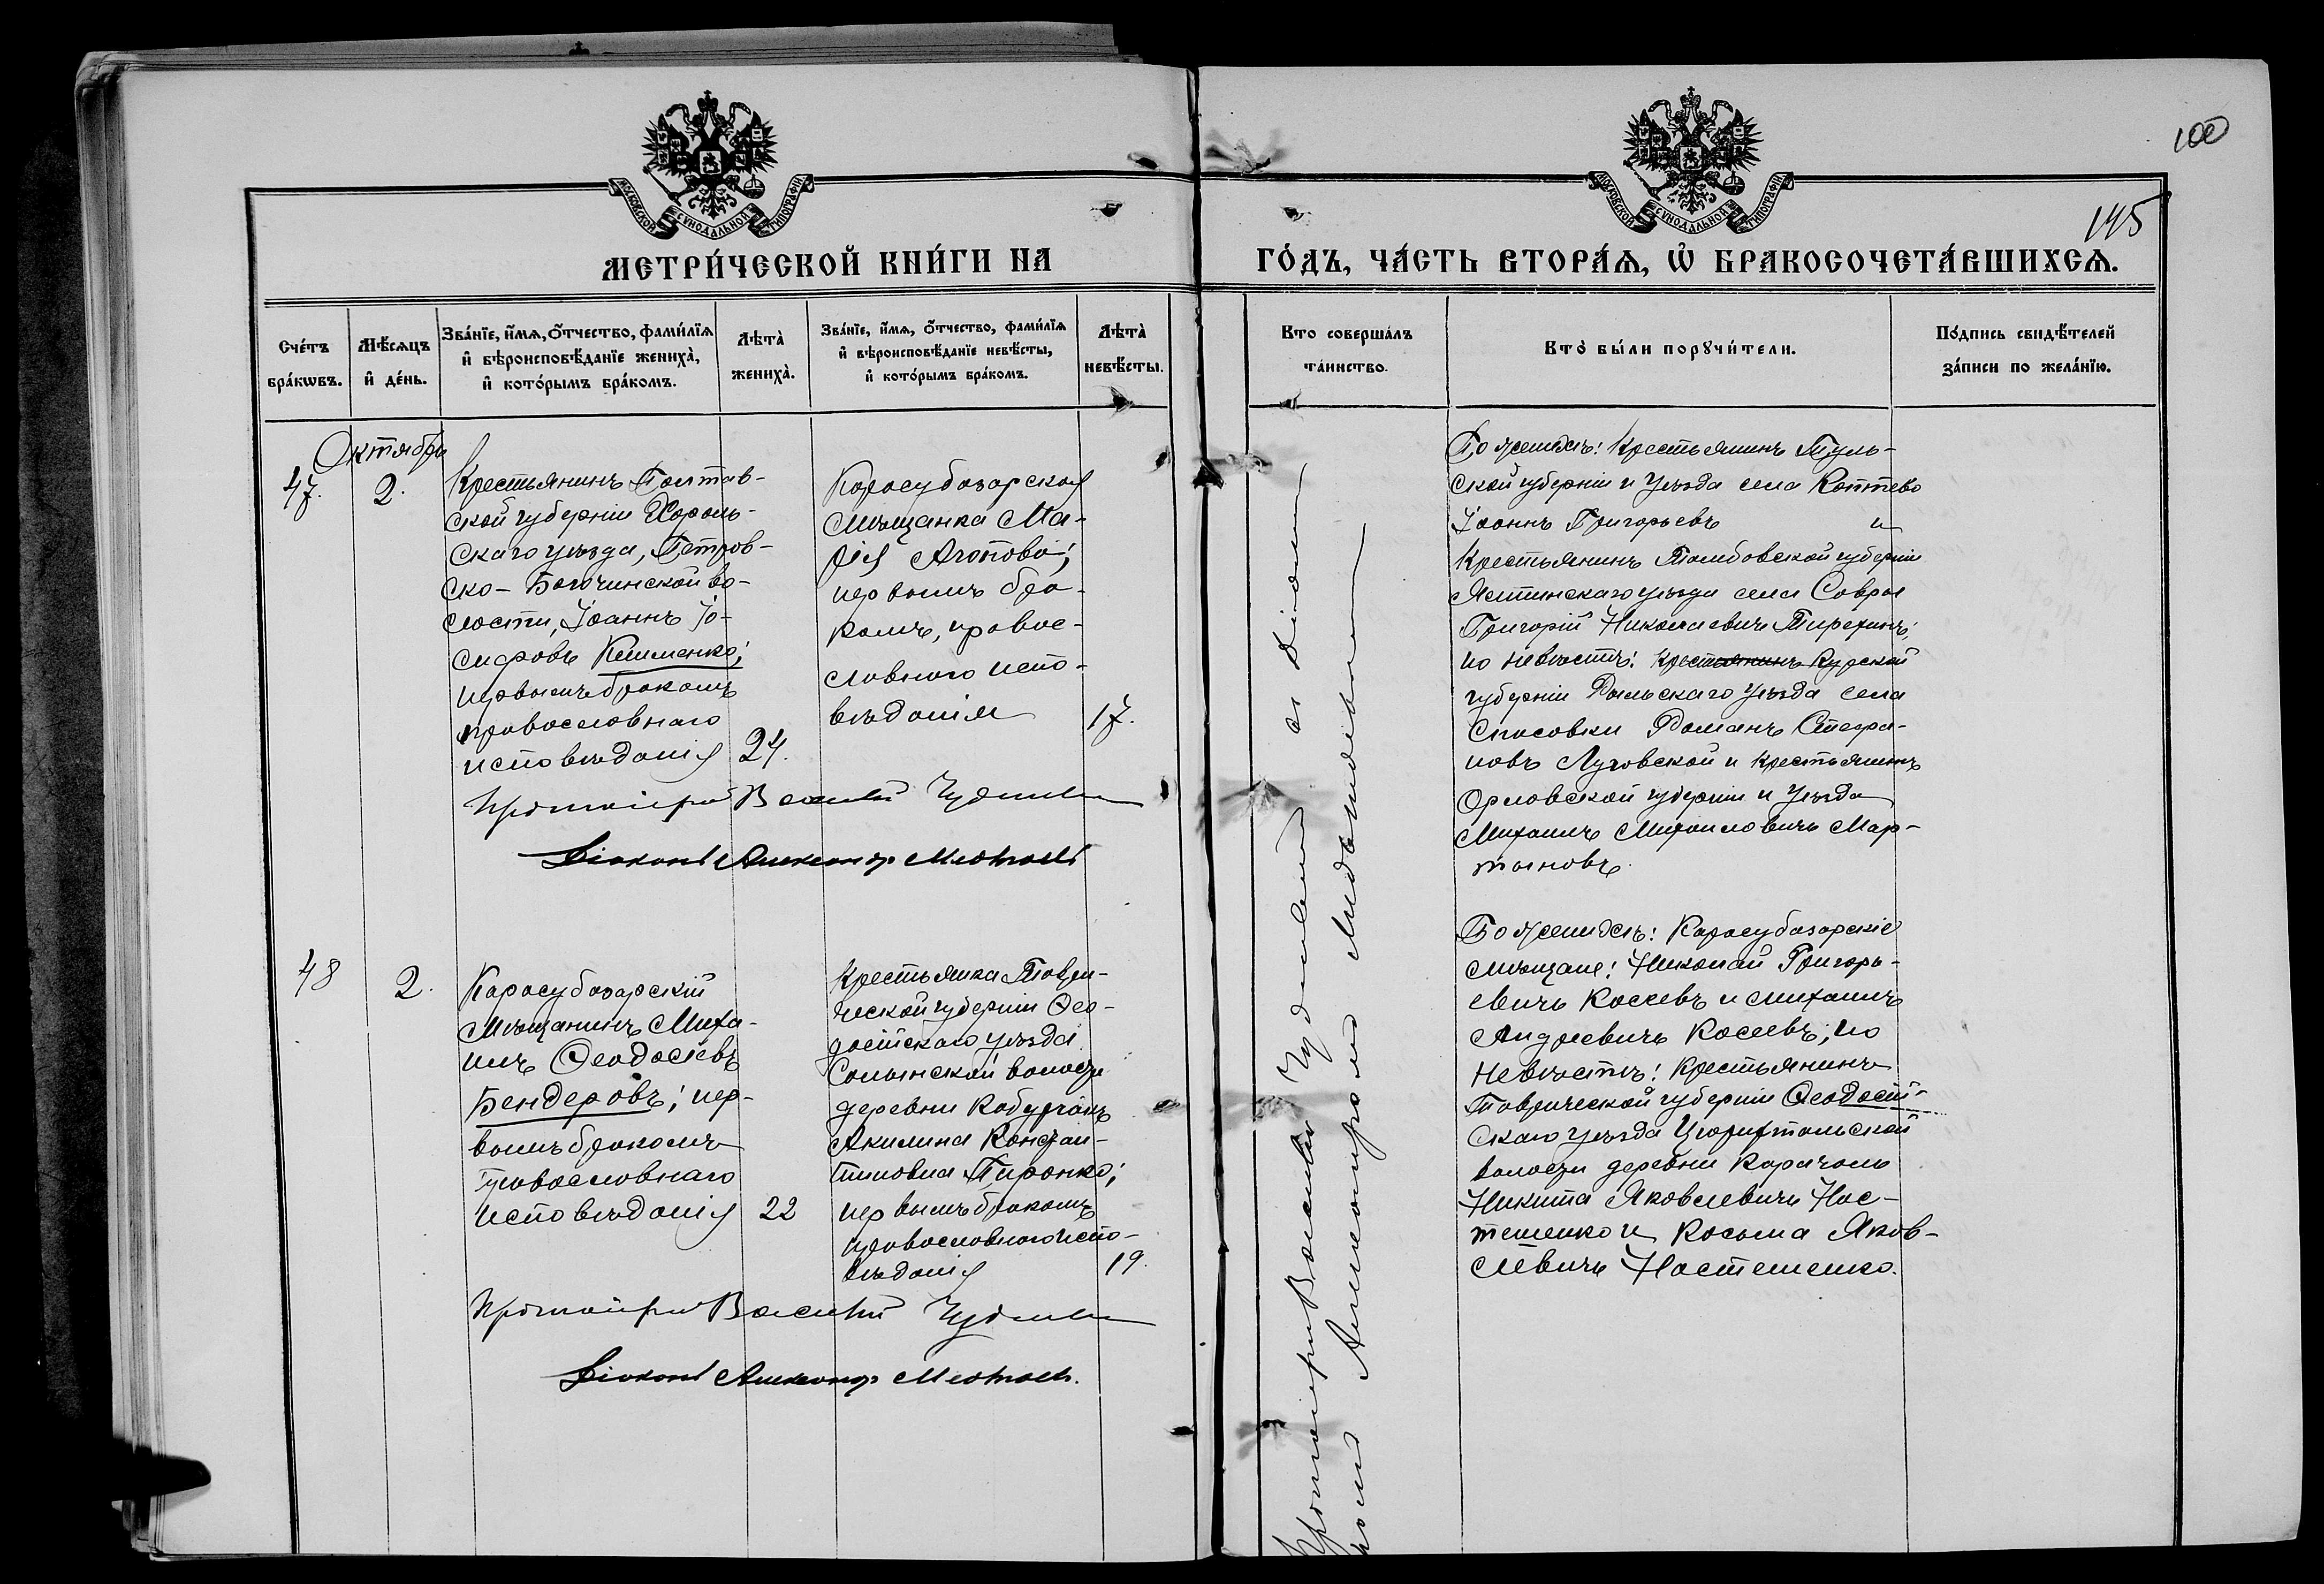 100
145
МОСКОВСКОЙ СѴНОДАЛЬНОЙ ТИПОГРАФІИ
МОСКОВСКОЙ СѴНОДАЛЬНОЙ ТИПОГРАФІИ
МЕТРИ́ЧЕСКОЙ КНИ́ГИ НА
ГО́ДЪ, ЧА́СТЬ ВТОРА́Я, Ѡ҆ БРАКОСОЧЕТА́ВШИХСЯ.
Сче́тъ бра́кѡвъ.
Мѣ́сяцъ и҆ де́нь.
Зва́нїе, и҆́мя, ѻ҆́тчество, фами́лїя и҆ вѣроисповѣ́данїе жениха̀, и҆ кото́рымъ бра́комъ.
Лѣта̀ жениха̀.
Зва́нїе, и҆́мя, ѻ҆́тчество, фами́лїя и҆ вѣроисповѣ́данїе невѣ́сты, и҆ кото́рымъ бра́комъ.
Лѣта̀ невѣ́сты.
Кто соверша́лъ та́инство.
Кто̀ бы́ли порꙋчи́тели.
По́дпись свидѣ́телей за́писи по жела́нїю.
Октябрь
47.
2.
Крестьянинъ Полтав-
ской губерніи Хороль-
скаго уѣзда, Петров-
ско-Богочинской во-
лости, Іоаннъ Іо-
сифовъ Клименко;
первымъ бракомъ
православнаго
исповѣданія
24.
Карасубазарская
мѣщанка Ма-
рія Агопова;
первымъ бра-
комъ, правос-
лавнаго испо-
вѣданія
17.
Протоіерей Василій
Діаконъ Александръ
По женихѣ: Крестьянинъ Туль-
ской губерніи и уѣзда села Коптево
Іоаннъ Григорьевъ и
Крестьянинъ Тамбовской губерніи
уѣзда села
Григорій Николаевичъ
по невѣстѣ: Крестьянинъ Курской
губерніи Рыльскаго уѣзда села
Спасовки Романъ Стефа-
новъ Луговской и Крестьянинъ
Орловской губерніи и уѣзда
Михаилъ Михаиловичъ Мар-
тыновъ.
48
2.
Карасубазарскій
Мѣщанинъ Миха-
илъ Ѳеодосіевъ
Бендеровъ; пер-
вымъ бракомъ
православнаго
исповѣданія
22
Крестьянка Таври-
ческой губерніи Ѳео-
досійскаго уѣзда
Салынской волости
деревни Кабурчакъ
Акилина Констан-
тиновна Пиронко;
первымъ бракомъ
православнаго испо-
вѣданія
19.
Протоіерей Василій
Діаконъ Александръ
По женихѣ: Карасубазарскіе
мѣщане: Николай Григорь-
евичъ Косяевъ и Михаилъ
Андреевичъ Косяевъ; по
невѣстѣ: Крестьянинъ
Таврической губерніи Ѳеодосій-
скаго уѣзда Цюрихтальской
волости деревни Карачоль
Никита Яковлевичъ Нос-
тешенко и Косьма Яков-
левичъ Ностешенко.
Протоіерей Василій
съ Діакономъ Александромъ